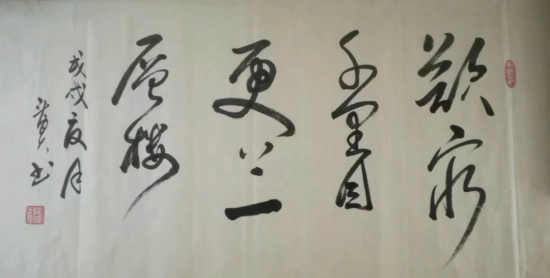 欲穷
千里目
更上一
层楼
戊戌夏月
书